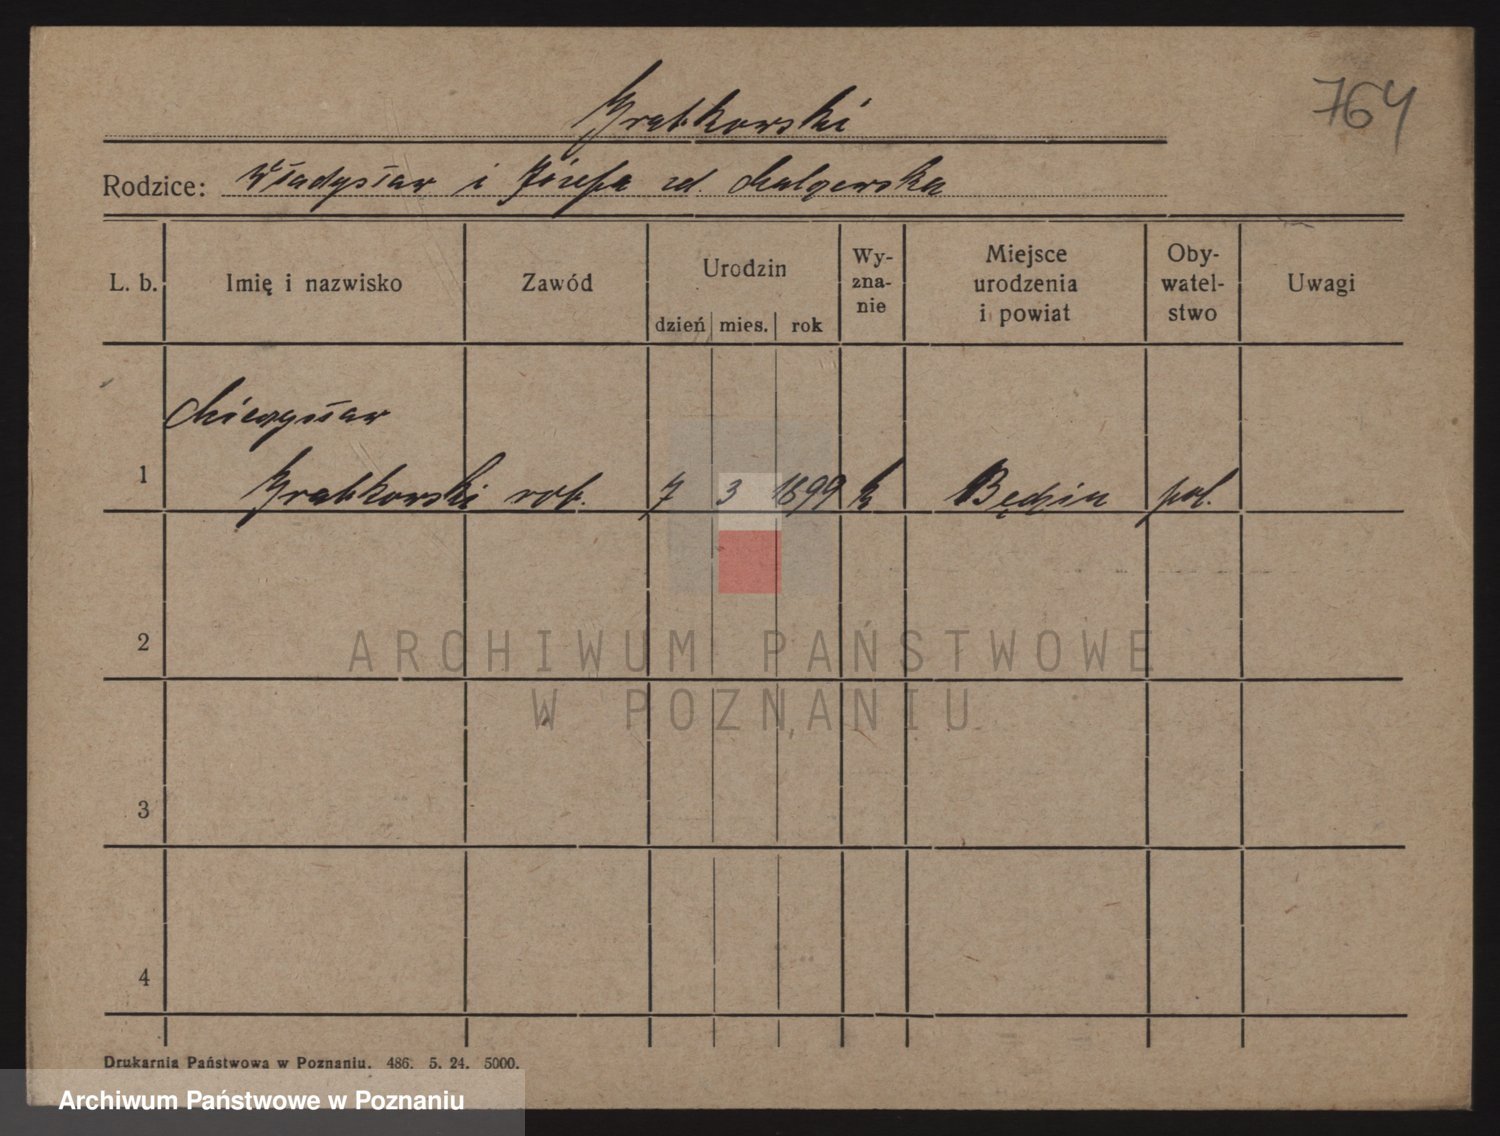 764
Grabkowski
Rodzice: Władysław i Józefa zd. Malgerska
L. b. Imię i nazwisko Zawód Urodzin dzień mies. rok Wy-zna-nie Miejsce urodzenia i powiat Oby-watel-stwo Uwagi
Mieczysław
1 Grabkowski rob. 7 3 1899 k Będzin pol.
2
ARCHIWUM PAŃSTWOWE
W POZNANIU
3
4
Drukarnia Państwowa w Poznaniu. 486. 5. 24. 5000.
Archiwum Państwowe w Poznaniu